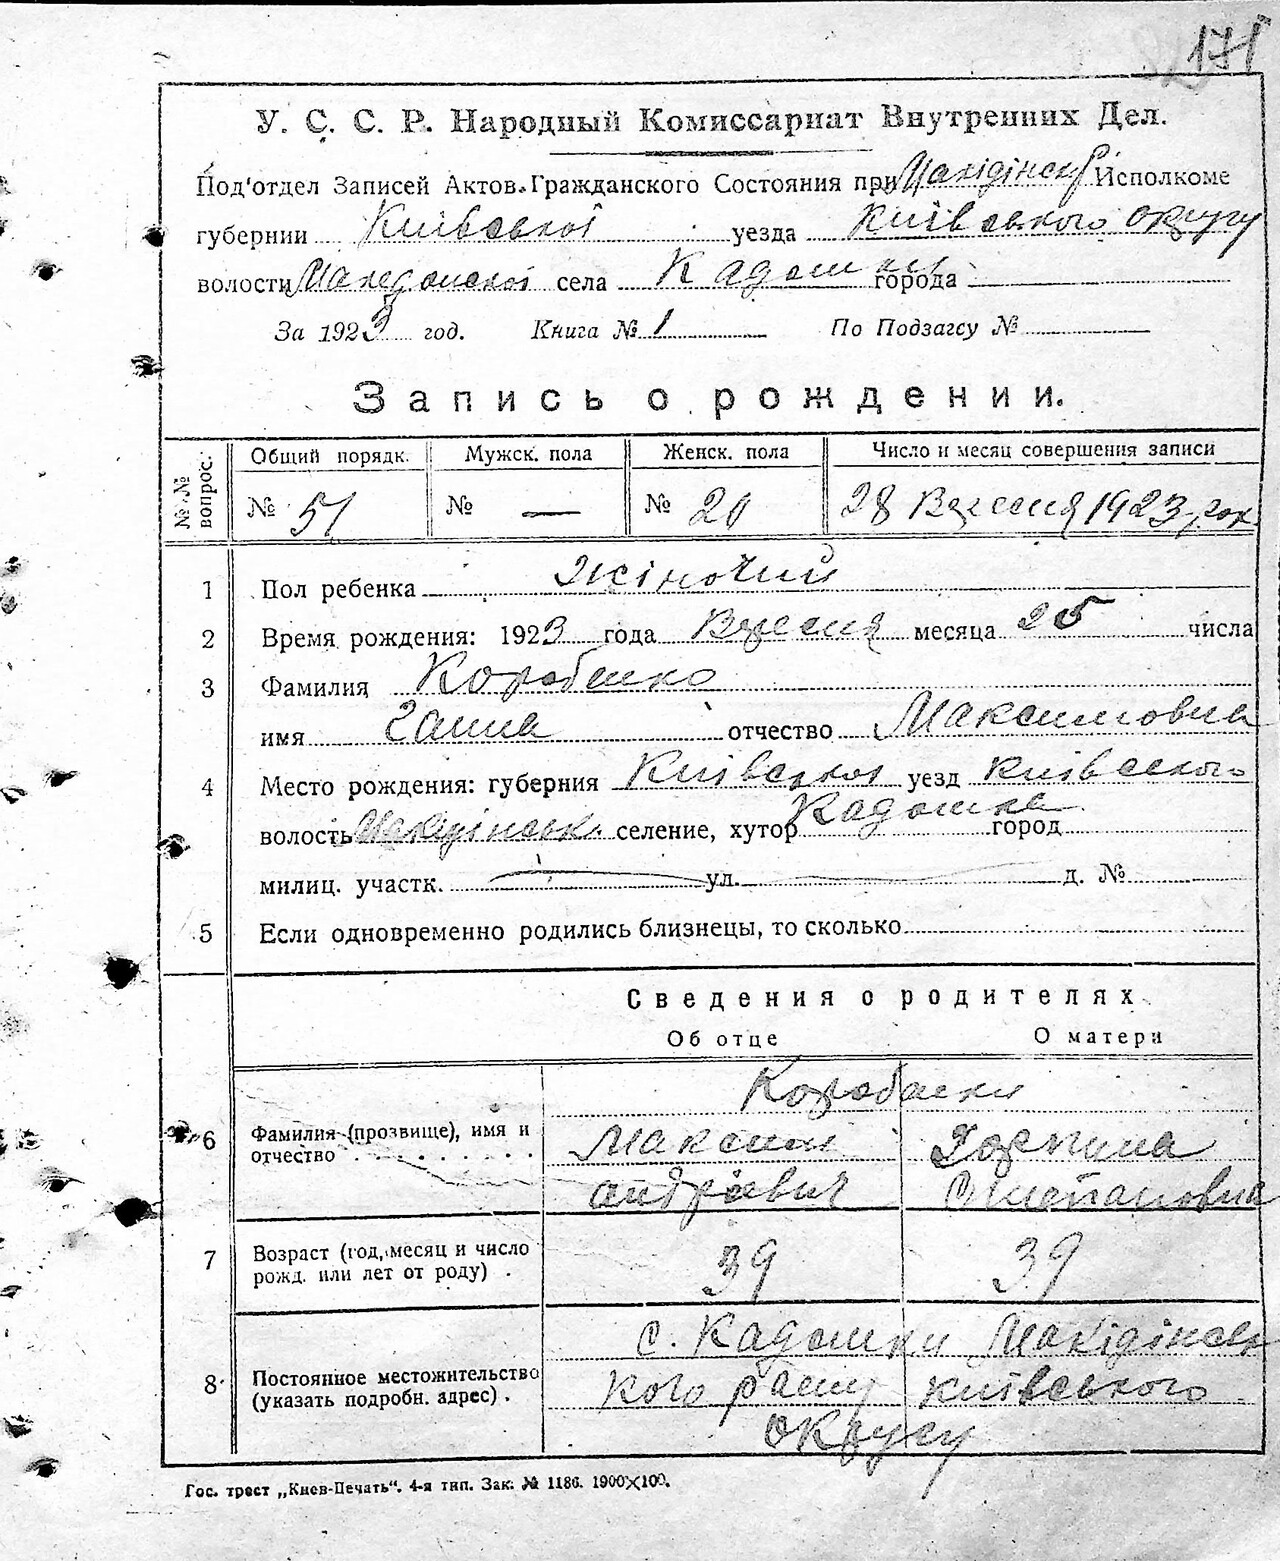 171
У. С. С. Р. Народный Комиссариат Внутренних Дел.
Под'отдел Записей Актов Гражданского Состояния при Исполкоме
губернии Київської уезда Київського округу
волости села Кадомки города
За 1923 год. Книга № 1 По Подзагсу №
Запись о рождении.
№№ вопрос. Общий порядк. Мужск. пола Женск. пола Число и месяц совершения записи
№ 51 № — № 20 28 Вересня 1923 рок
1 Пол ребенка Жіночий
2 Время рождения: 1923 года Вересня месяца 25 числа
3 Фамилия Коробенко
имя Ганна отчество Максимовна
4 Место рождения: губерния Київської уезд Київського
волость селение, хутор Кадомка город
милиц. участк. ул. д. №
5 Если одновременно родились близнецы, то сколько
Сведения о родителях
Об отце О матери
Коробенки
6 Фамилия (прозвище), имя и отчество Максим Горпина
Степановна
7 Возраст (год, месяц и число рожд. или лет от роду) . 39 39
с. Кадомки Макідінсь
8 Постоянное местожительство (указать подробн. адрес) . кого Київського
округу
Гос. трест „Киев-Печать“. 4-я тип. Зак. № 1186. 1900×100.